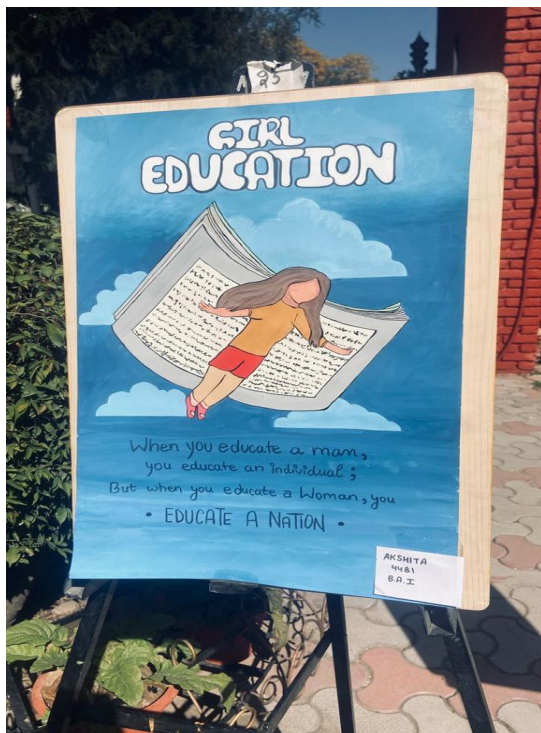 95
GIRL
EDUCATION
When you educate a man,
you educate an individual;
But when you educate a Woman, you
• EDUCATE A NATION •
AKSHITA
4481
B.A.I